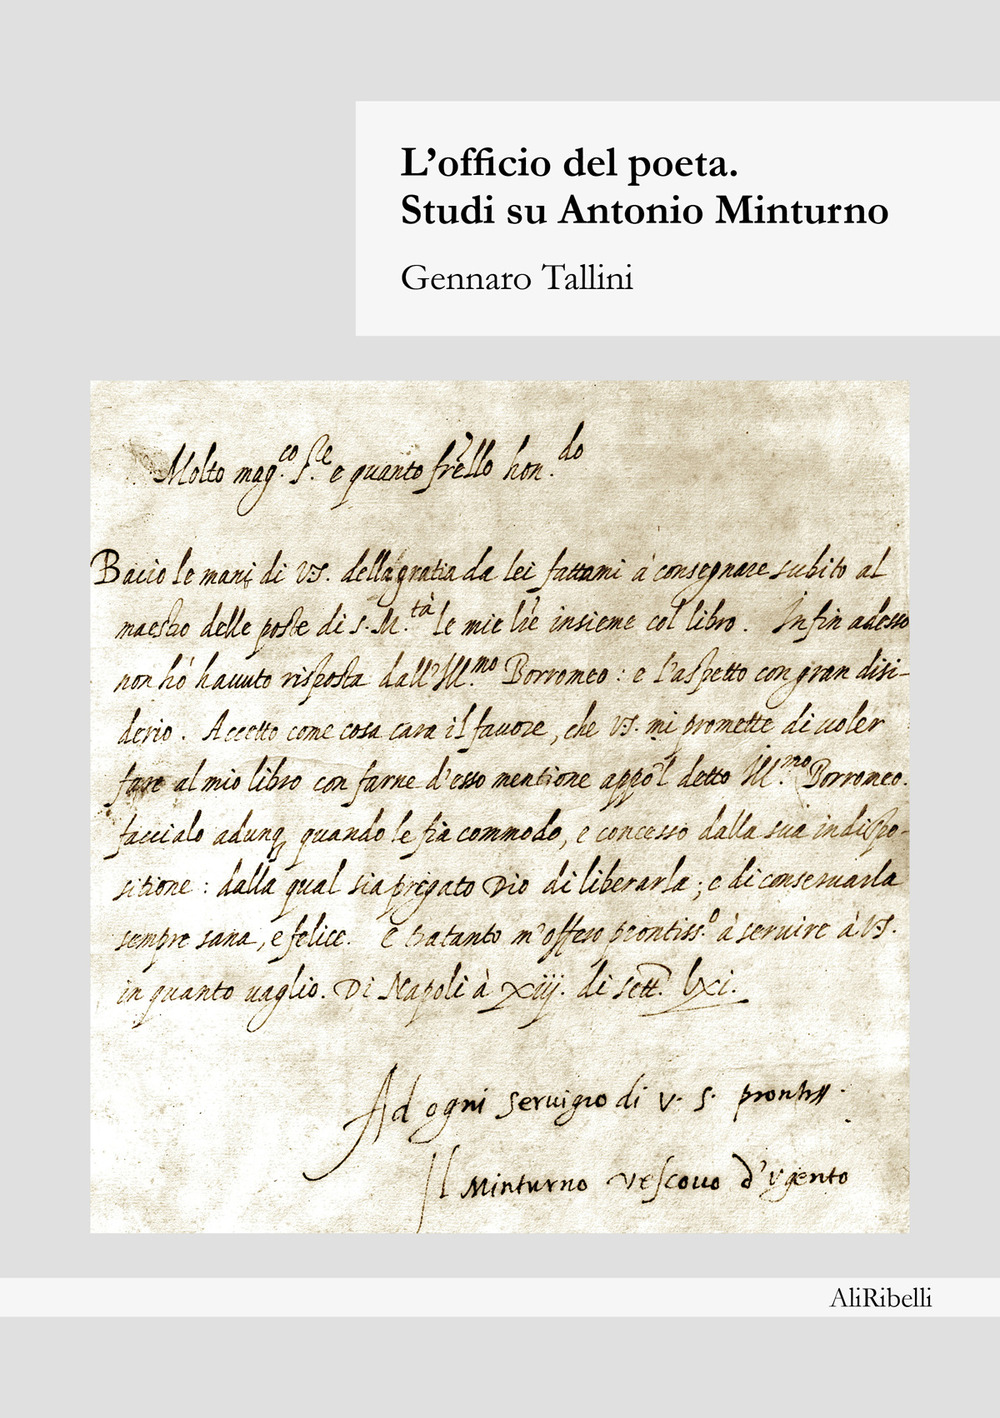 L'officio del poeta.
Studi su Antonio Minturno
Gennaro Tallini
Molto mag.co S.re e quanto fr̃ello hon.do
Bacio le mani di VS. della gratia da lei fattami à consegnare subito al
maestro delle poste di S. M.tà le mie lr̃e insieme col libro. Infin adesso
non hò hauuto risposta dall'Ill.mo Borromeo: e l'aspetto con gran disi-
derio. Accetto come cosa cara il fauore, che VS. mi promette di uoler
fare al mio libro con farne d'esso mentione appo'l detto Ill.mo Borromeo.
facciala adunq quando le fia commodo, e concesso dalla sua indispo-
sitione: dalla qual sia pregato Dio di liberarla; e di conseruarla
sempre sana, e felice. e tratanto m'offero prontiss.o à seruire à VS.
in quanto uaglio. Di Napoli à xiij. di sett. lxi.
Ad ogni seruigio di v. s. prontiss.
Il Minturno vescouo d'vgento
AliRibelli